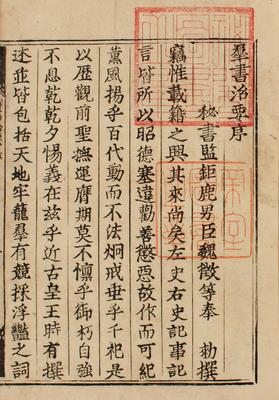 羣書治要序
秘書監鉅鹿男臣魏徵等奉　勅撰
竊惟載籍之興其來尚矣左史右史記事記
言皆所以昭德塞違勸善懲惡故作而可紀
薰風揚乎百代動而不法炯戒垂乎千祀是
以歷觀前聖撫運膺期莫不懍乎御朽自強
不息乾乾夕惕義在茲乎近古皇王時有撰
述並皆包括天地牢籠羣有競採浮豔之詞